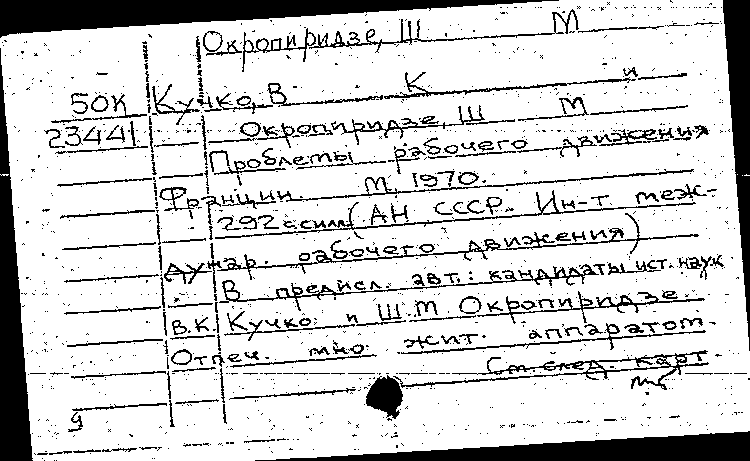 Окропиридзе, Ш М
50К Кучко, В К и
23441 Окропиридзе, Ш М
Проблемы рабочего движения
Франции. М, 1970.
292с силл (АН СССР. Ин-т меж-
дунар. рабочего движения)
В предисл. авт.: кандидаты ист. наук
В.К. Кучко и Ш.М Окропиридзе.
Отпеч. мно жит. аппаратом.
См. след. карт.
9